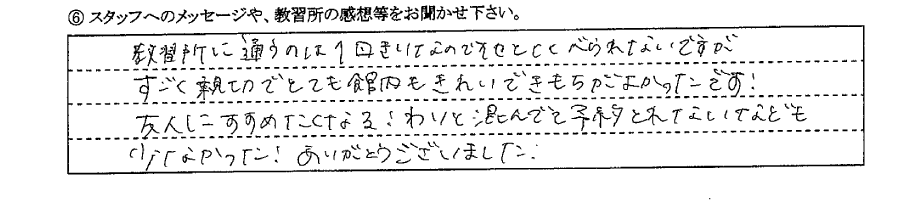 ⑥ スタッフへのメッセージや、教習所の感想等をお聞かせ下さい。
教習所に通うのは1回きりなので他とくらべられないですが
すごく親切でとても館内もきれいできもちがよかったです!
友人にすすめたくなる!わりと混んでて予約とれないなども
少なかった!ありがとうございました.